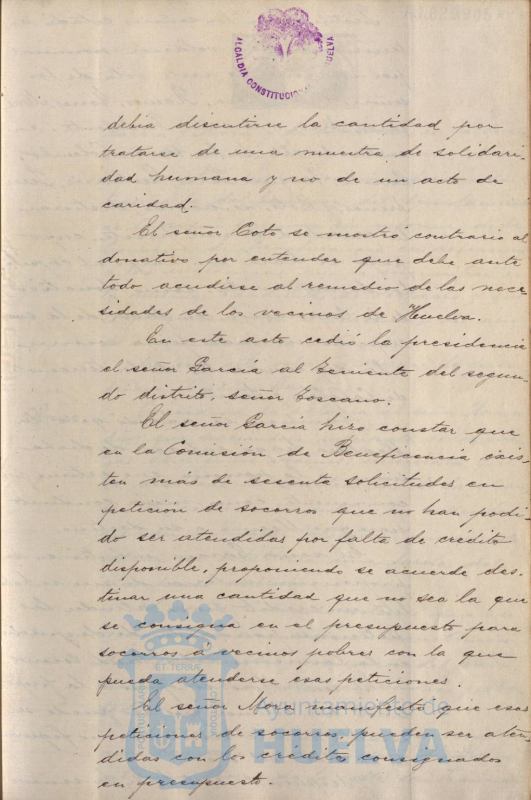 ALCALDIA CONSTITUCIO HUELVA
debia discutirse la cantidad por
tratarse de una muestra de solidari
dad humana y no de un acto de
caridad.
El señor Coto se mostró contrario al
donativo por entender que debe ante
todo acudirse al remedio de las nece
sidades de los vecinos de Huelva.
En este acto cedió la presidencia
el señor García al Teniente del segun
do distrito, señor Toscano.
El señor García hizo constar que
en la Comisión de Beneficencia exis
ten más de sesenta solicitudes en
petición de socorros que no han podi
do ser atendidas por falta de crédito
disponible, proponiendo se acuerde des
tinar una cantidad que no sea la que
se consigna en el presupuesto para
socorros á vecinos pobres con la que
pueda atenderse esas peticiones.
El señor Mora manifestó que esas
peticiones de socorros, pueden ser aten
didas con los créditos consignados
en presupuesto.
ET TERRÆ
Ayuntamiento de
HUELVA